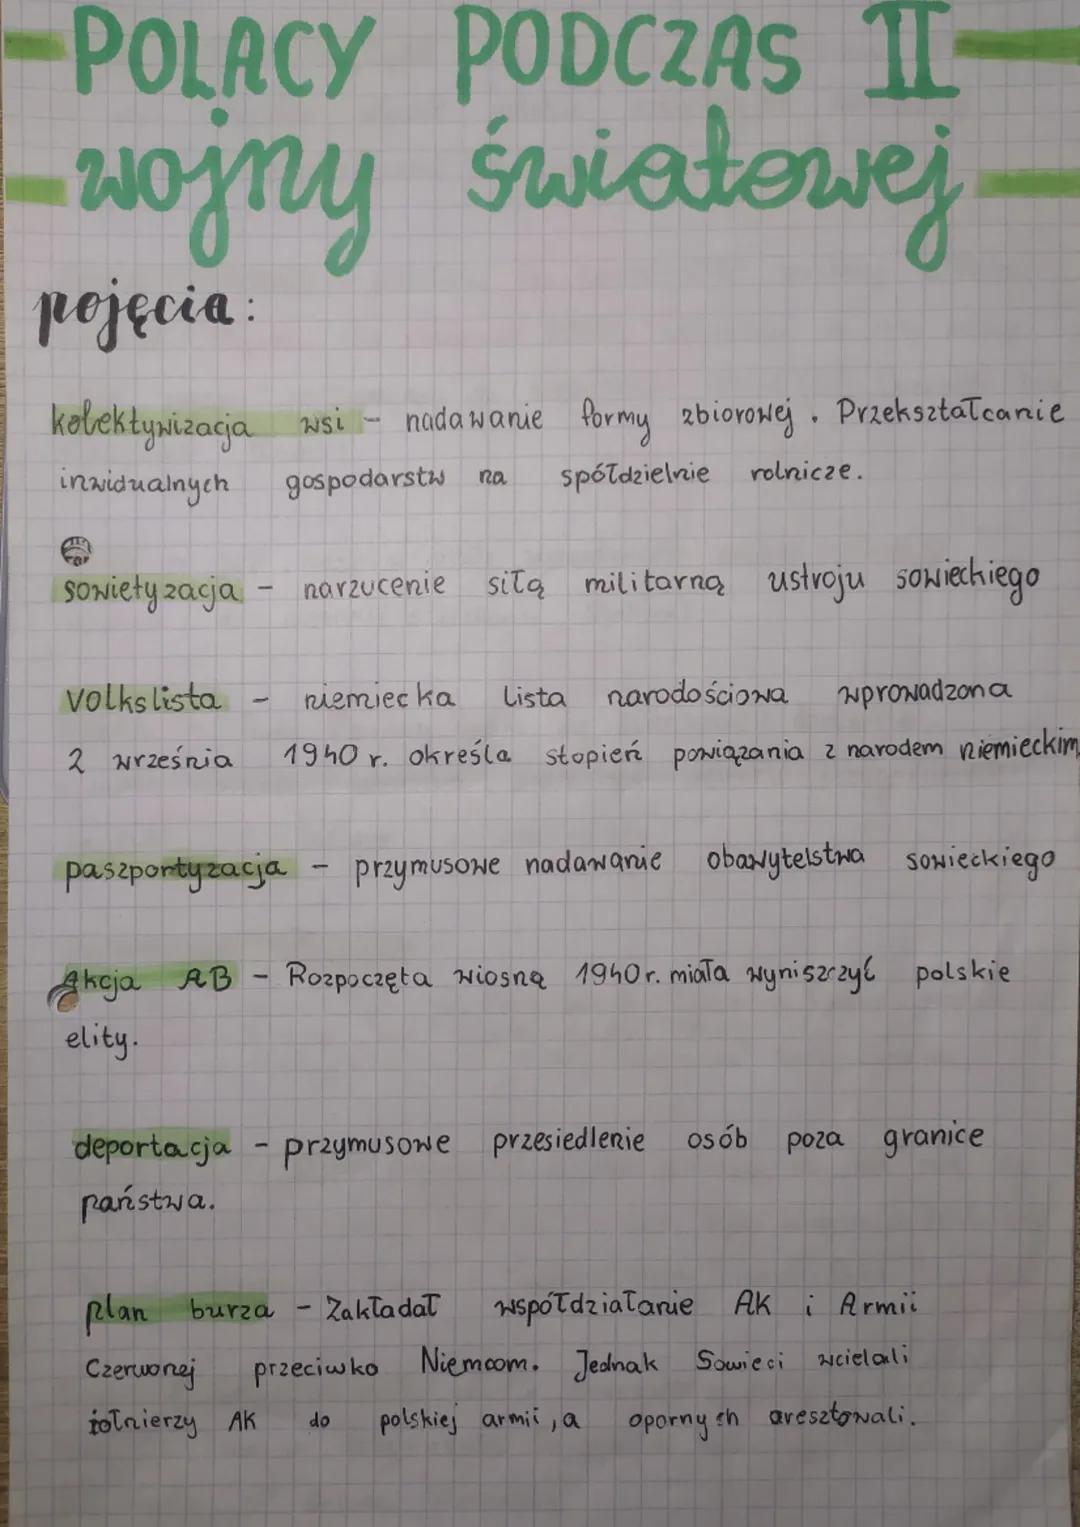 POLACY PODCZAS II
wojny światowej
pojęcia:
kolektywizacja wsi - nadawanie formy zbiorowej. Przekształcanie
inwidualnych gospodarstw na spółdzielnie rolnicze.
sowietyzacja - narzucenie siłą militarną ustroju sowieckiego
Volkslista - niemiecka lista narodościowa wprowadzona
2 września 1940 r. określa stopień powiązania z narodem niemieckim
paszportyzacja - przymusowe nadawanie obawytelstwa sowieckiego
Akcja AB - Rozpoczęta wiosną 1940r. miała wyniszczyć polskie
elity.
deportacja - przymusowe przesiedlenie osób poza granice
państwa.
plan burza - Zakładał współdziałanie AK i Armii
Czerwonej przeciwko Niemcom. Jednak Sowieci wcielali
żołnierzy AK do polskiej armii, a opornych aresztowali.